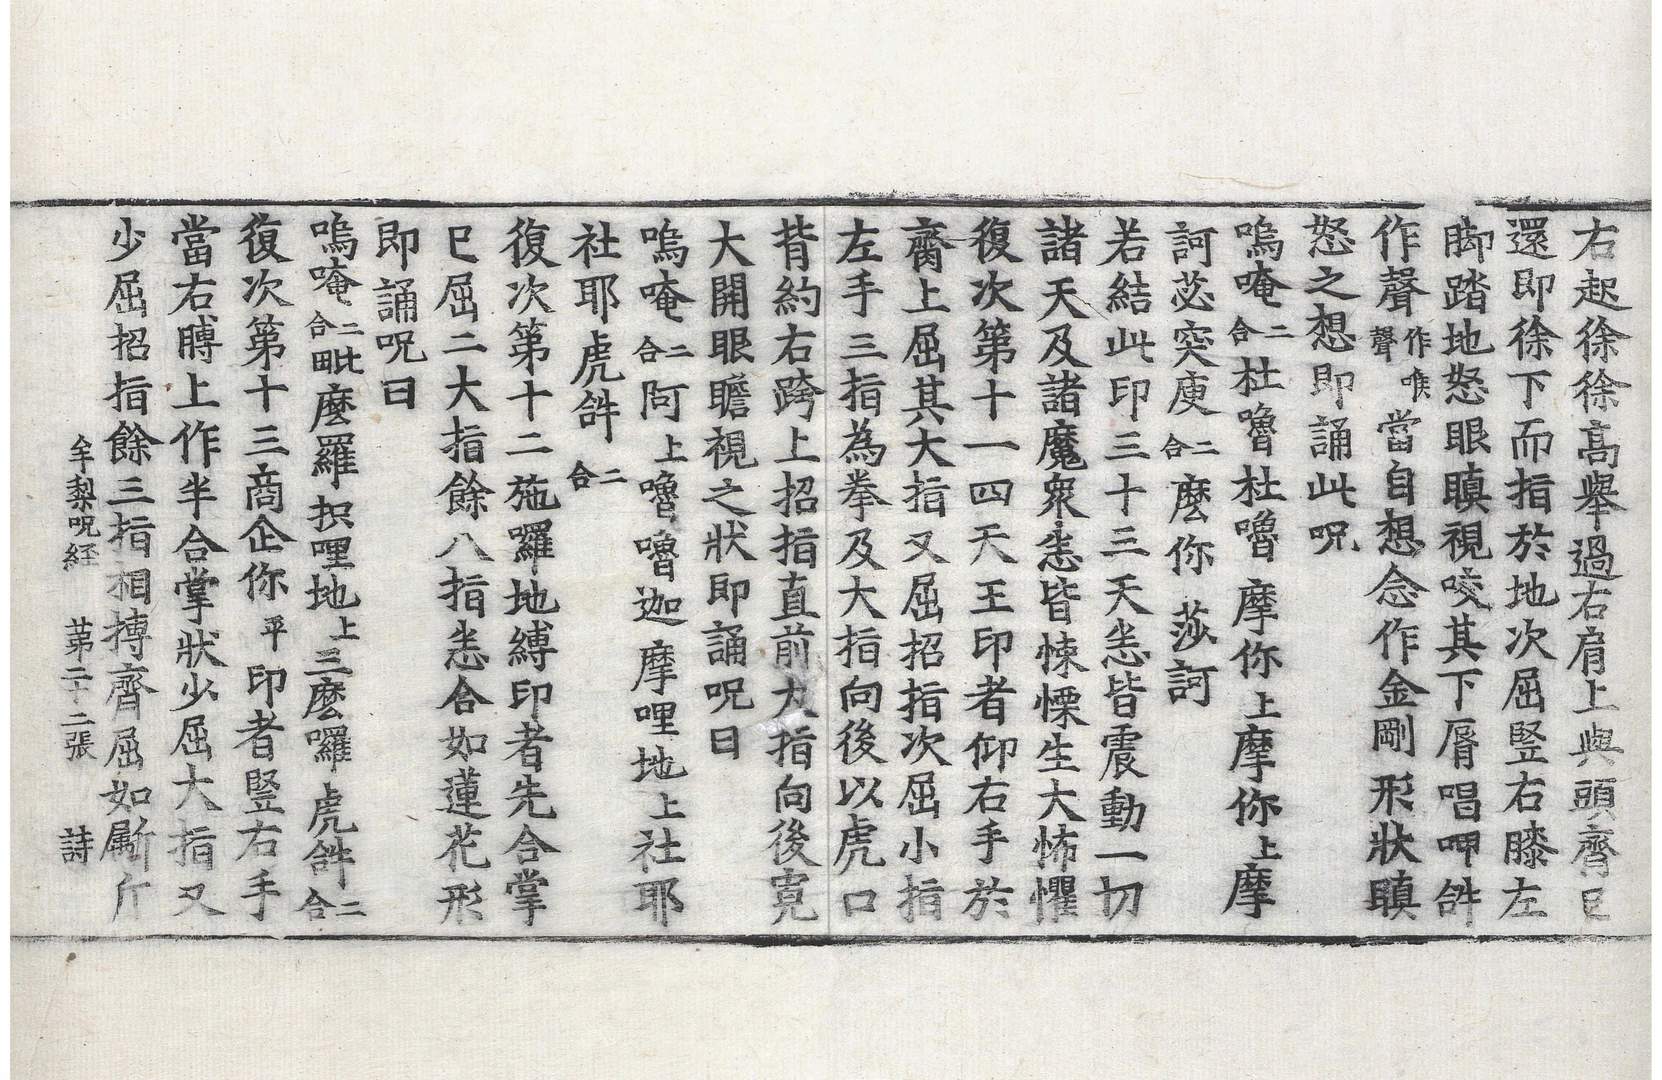 右起徐徐高舉過右肩上與頭齊已
還即徐下而指於地次屈竪右膝左
脚踏地怒眼瞋視咬其下脣唱呷𤙖
作聲作喉聲當自想念作金剛形狀瞋
怒之想即誦此呪
嗚唵二合杜嚕杜嚕摩你上摩你上摩
訶苾突㢱二合麼你莎訶
若結此印三十三天恙皆震動一切
諸天及諸魔衆恙皆悚慄生大怖懼
復次第十一四天王印者仰右手於
齊上屈其大指又屈招指次屈小指
左手三指為拳及大指向後以虎口
背約右跨上招指直前大指向後寬
大開眼瞻視之狀即誦呪曰
嗚唵二合阿上嚕嚕迦摩哩地上社耶
社耶虎𤙖二合
復次第十二施囉地縛印者先合掌
已屈二大指餘八指恙合如蓮花形
即誦呪曰
嗚唵二合毗麼羅抧哩地上三麼囉虎𤙖二合
復次第十三商企你平印者竪右手
當右膊上作半合掌狀少屈大指又
少屈招指餘三指相搏齊屈如斸斤
牟梨呪経 苐二十二張 詩